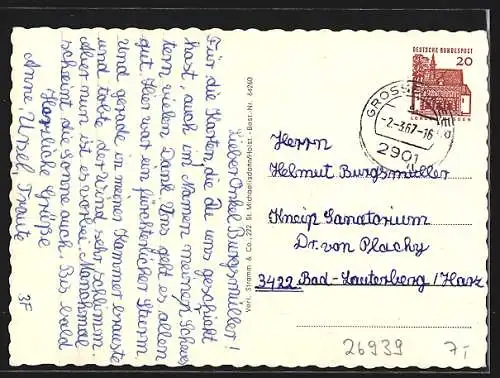 Lieber Onkel Burgsmüller!
Für die Karten, die Du uns geschickt
hast, auch im Namen meiner Schwes
tern vielen Dank. Uns geht es allen
gut. Hier war ein fürchterlicher Sturm
und gerade in meiner Kammer brauste
und tobte der Wind sehr schlimm.
Aber nun ist es vorbei. Manchmal
scheint die Sonne auch. Bis bald
Herzliche Grüße
Anne, Ursel, Traute
3F
Verl. Stramm & Co., 222 St. Michaelisdonn/Holst. - Best. Nr. 64260
DEUTSCHE BUNDESPOST
20
LORSCH HESSEN
GROSSE
-2.-3.67-16
2901
Herrn
Helmut Burgsmüller
Kneip Sanatorium
Dr. von Plachy
3422 Bad-Lauterberg/Harz
26939
7,-